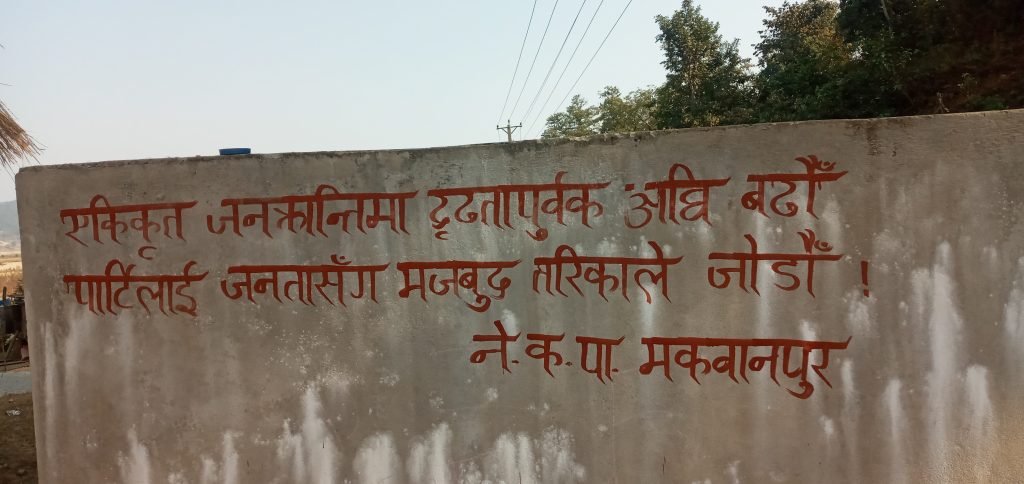 एकिकृत जनक्रान्तिमा दृढतापुर्वक अघि बढौँ
पार्टिलाई जनतासँग मजबुद तरिकाले जोडौँ !
ने.क.पा. मकवानपुर